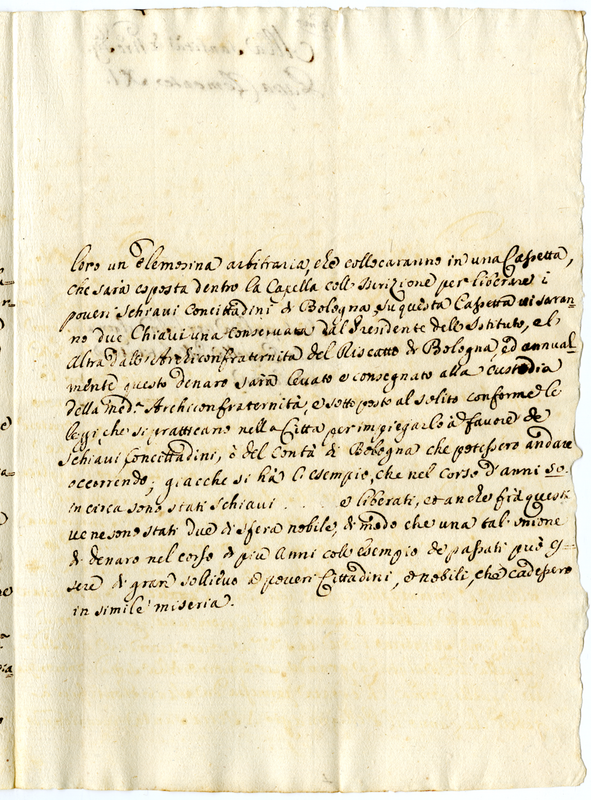 loro un'elemosina arbitraria, che collocaranno in una Cassetta,
che sarà esposta dentro la Capella coll'Iscrizione per liberare i
poveri Schiavi Concittadini di Bologna, su questa Cassetta vi saran-
no due Chiavi una conservata dal Prendente dell'Istituto, e l'
altra dall'Archiconfraternità del Riscatto di Bologna, ed annual-
mente questo denaro sarà levato e consegnato alla custodia
della med.ª Archiconfraternità, e sottoposto al solito conforme le
leggi che si pratticano nella Città per impiegarlo à favore de
Schiavi Concittadini, ò del Contà di Bologna che potessero andare
occorrendo; giacche si hà l'esempio, che nel corso d'anni 50.
in circa sono stati Schiavi . . . e liberati, et anche frà questi
ve ne sono stati due di sfera nobile, di modo che una tal unione
di denaro nel corso di più Anni coll'esempio de passati può es-
sere di gran sollievo a poveri Cittadini, e nobili, che cadessero
in simile miseria.